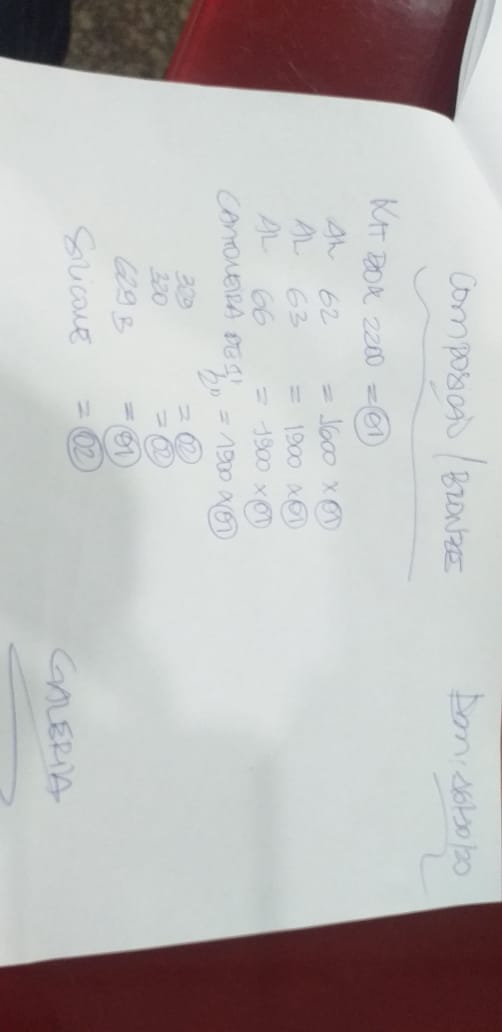 Composição / BRONZE
Kit BOX 2200 = 01
AL 62 = 1600 x 01
AL 63 = 1900 x 01
AL 66 = 1900 x 01
CANTONEIRA DE 1" = 1900 x 01
320 = 02
320 = 02
629 B = 01
Silicone = 02
GALERIA